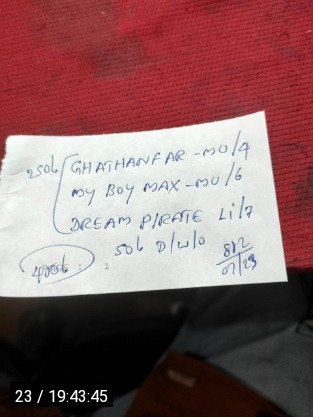 250L GHATHANFAR - MU/4
MY BOY MAX - MU/6
DREAM PIRATE Li/7
50L D/W/O
07/23
23 / 19:43:45